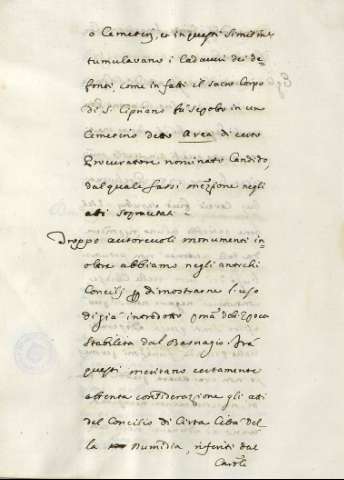 o Cemeterj, e in questi simil.te
tumulavano i Cadaveri dei de-
fonti, come in fatti il sacro Corpo
di S. Cipriano fu sepolto in un
Cemeterio detto Area di certo
Procuratore nominato Candido,
dal quale fassi menzione negli
atti soprecitati.
Troppo autorevoli monumenti in-
oltre abbiamo negli antichi
Concilj p dimostrarne l'uso
di già introdotto pma dell'Epoca
stabilita dal Basnagio. Fra
questi meritano certamente
attenta considerazione gli atti
del Concilio di Cirta Città del-
la Numidia, riferiti dal